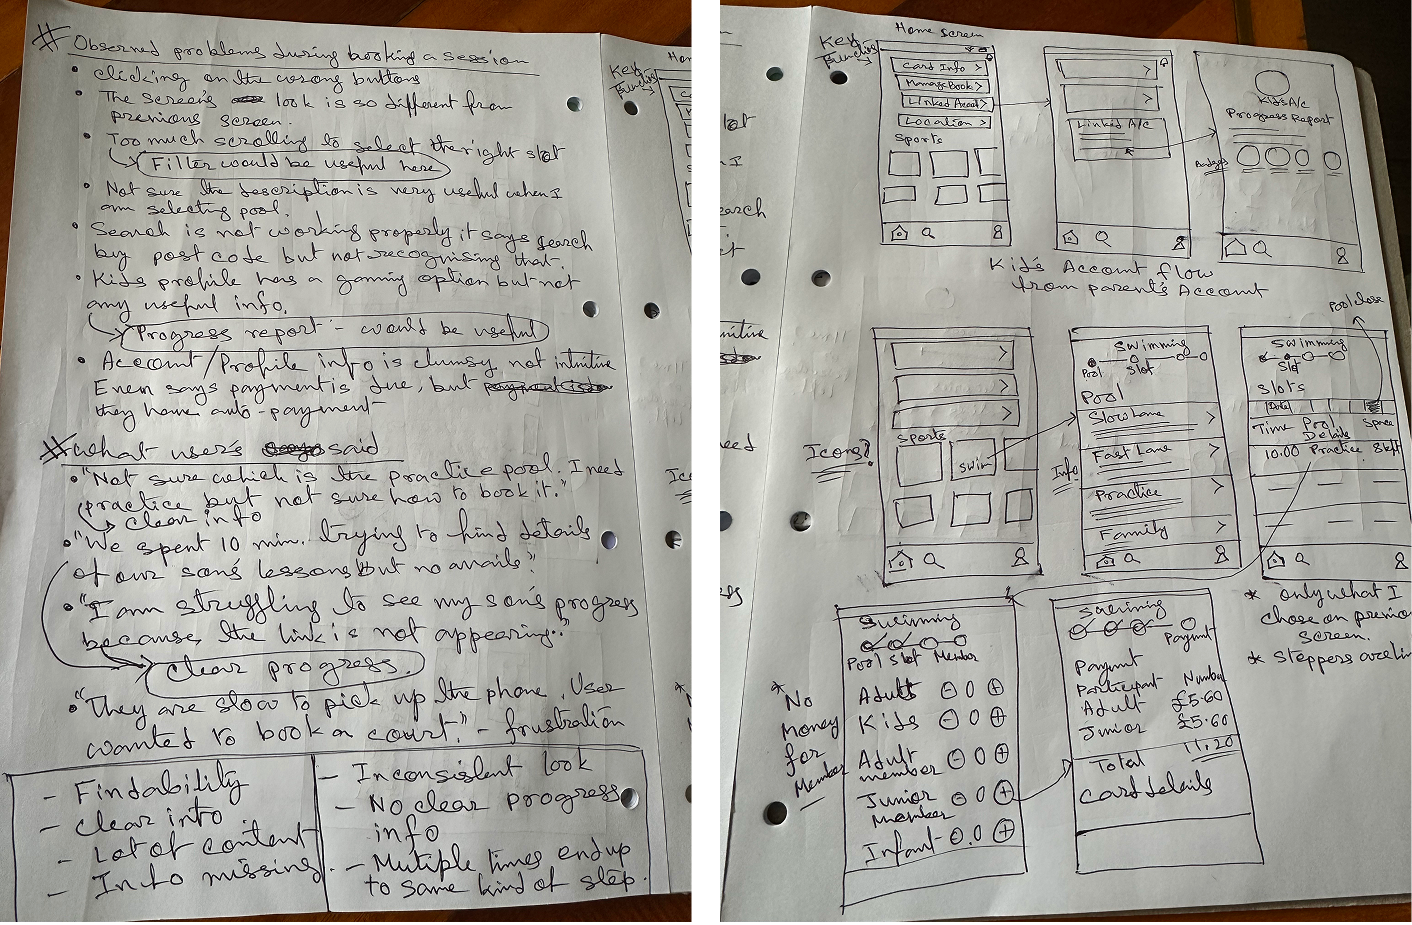 # Observed problems during booking a session
• clicking on the wrong buttons
• The screen's look is so different from
previous screen.
• Too much scrolling to select the right slot
Filter would be useful here
• Not sure the description is very useful when I
am selecting pool.
• Search is not working properly it says search
by post code but not recognising that.
• Kids profile has a gaming option but not
any useful info.
Progress report - would be useful
• Account/Profile info is clumsy, not intuitive
Even says payment is due, but
they have auto-payment
# What users said
• "Not sure which is the practice pool. I need
practice but not sure how to book it."
clear info
• "We spent 10 min. trying to find details
of our son's lessons but no avails"
• "I am struggling to see my son's progress
because, the link is not appearing."
clear progress.
• "They are slow to pick up the phone. User
wanted to book a court." - frustration
- Findability
- clear info
- Lot of content
- Info missing.
- Inconsistent look
- No clear progress
info
- Multiple times end up
to same kind of step.
Home
Key
lot
I
search
need
Home screen
Key
Card Info >
Manage Book >
Linked Account >
Location >
Sports
Linked A/c
Kids A/c
Progress Report
Badges
Kid's Account flow
from parent's Account
Pool close
Icons?
Sports
Swim
Info
Swimming
Pool Slot
Pool
Slow Lane >
Fast Lane >
Practice >
Family >
Swimming
Slot
Slots
Date
Time Pool Details Space
10:00 Practice 8 left
* only what I
chose on previo
screen.
* Steppers
* No
money
for
Member
Swimming
Pool Slot Member
Adult - 0 +
Kids - 0 +
Adult
member - 0 +
Junior
Member - 0 +
Infant - 0 +
Swimming
Paymnt
Paymnt
Participant Number
Adult £5.60
Junior £5.60
Total 11.20
Card details